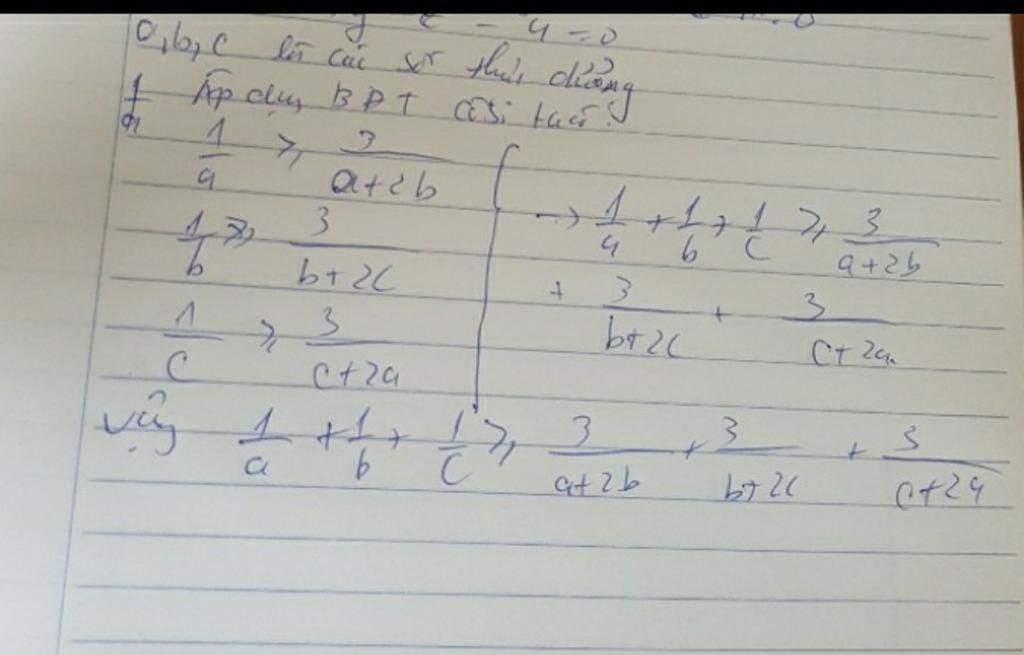 - 4 = 0
a, b, c là các số thực dương
Áp dụng BĐT Côsi ta có:
1/a ≥ 3/(a+2b)
1/b ≥ 3/(b+2c)
1/c ≥ 3/(c+2a)
→ 1/a + 1/b + 1/c ≥ 3/(a+2b)
+ 3/(b+2c) + 3/(c+2a)
Vậy 1/a + 1/b + 1/c ≥ 3/(a+2b) + 3/(b+2c) + 3/(c+2a)